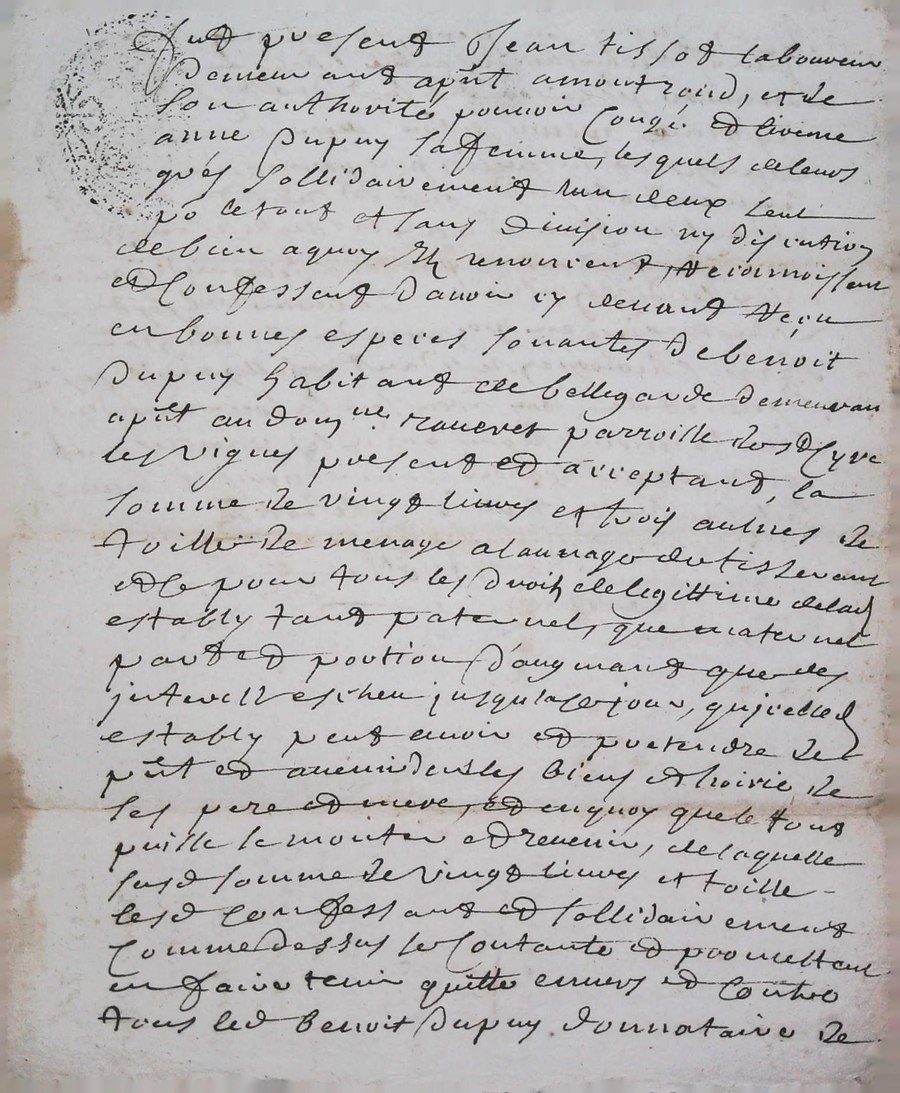 fut present Jean tissot laboureur
demeurant apñt a montrond, et de
son authorité pouvoir Congé et licence
anne Dupuy sa femme, lesquels de leurs
grés sollidairement lun deux seul
po le tout et sans division ny discution
de bien a quoy Ils renoncent, Reconnoissent
et Confessent d'avoir cy devant Reçu
en bonnes especes sonantes de benoit
Dupuy habitant de bellegarde demeurant
apñt au domne. parroisse de st Cyre
les vignes present et acceptant, la
somme de vingt livres et trois aulnes de
toille de menage a launage du tisserant
et ce pour tous les droits de legittime de lad
establÿ tant paternels que maternel
part et portion d'augmant que des
interests escheu jusqu'a ce jour, qu'icelle d
establÿ peut avoir et pretendre de
pñt et avenir dans les biens et hoirie de
ses pere et mere, et en quoy que le tout
puisse se monter et revenir, de laquelle
susd somme de vingt livres et toille
lesd Confessant et sollidairement
Comme dessus se Contante et promettant
en faire tenir quitte envers et Contre
tous led Benoit Dupuy donnataire de